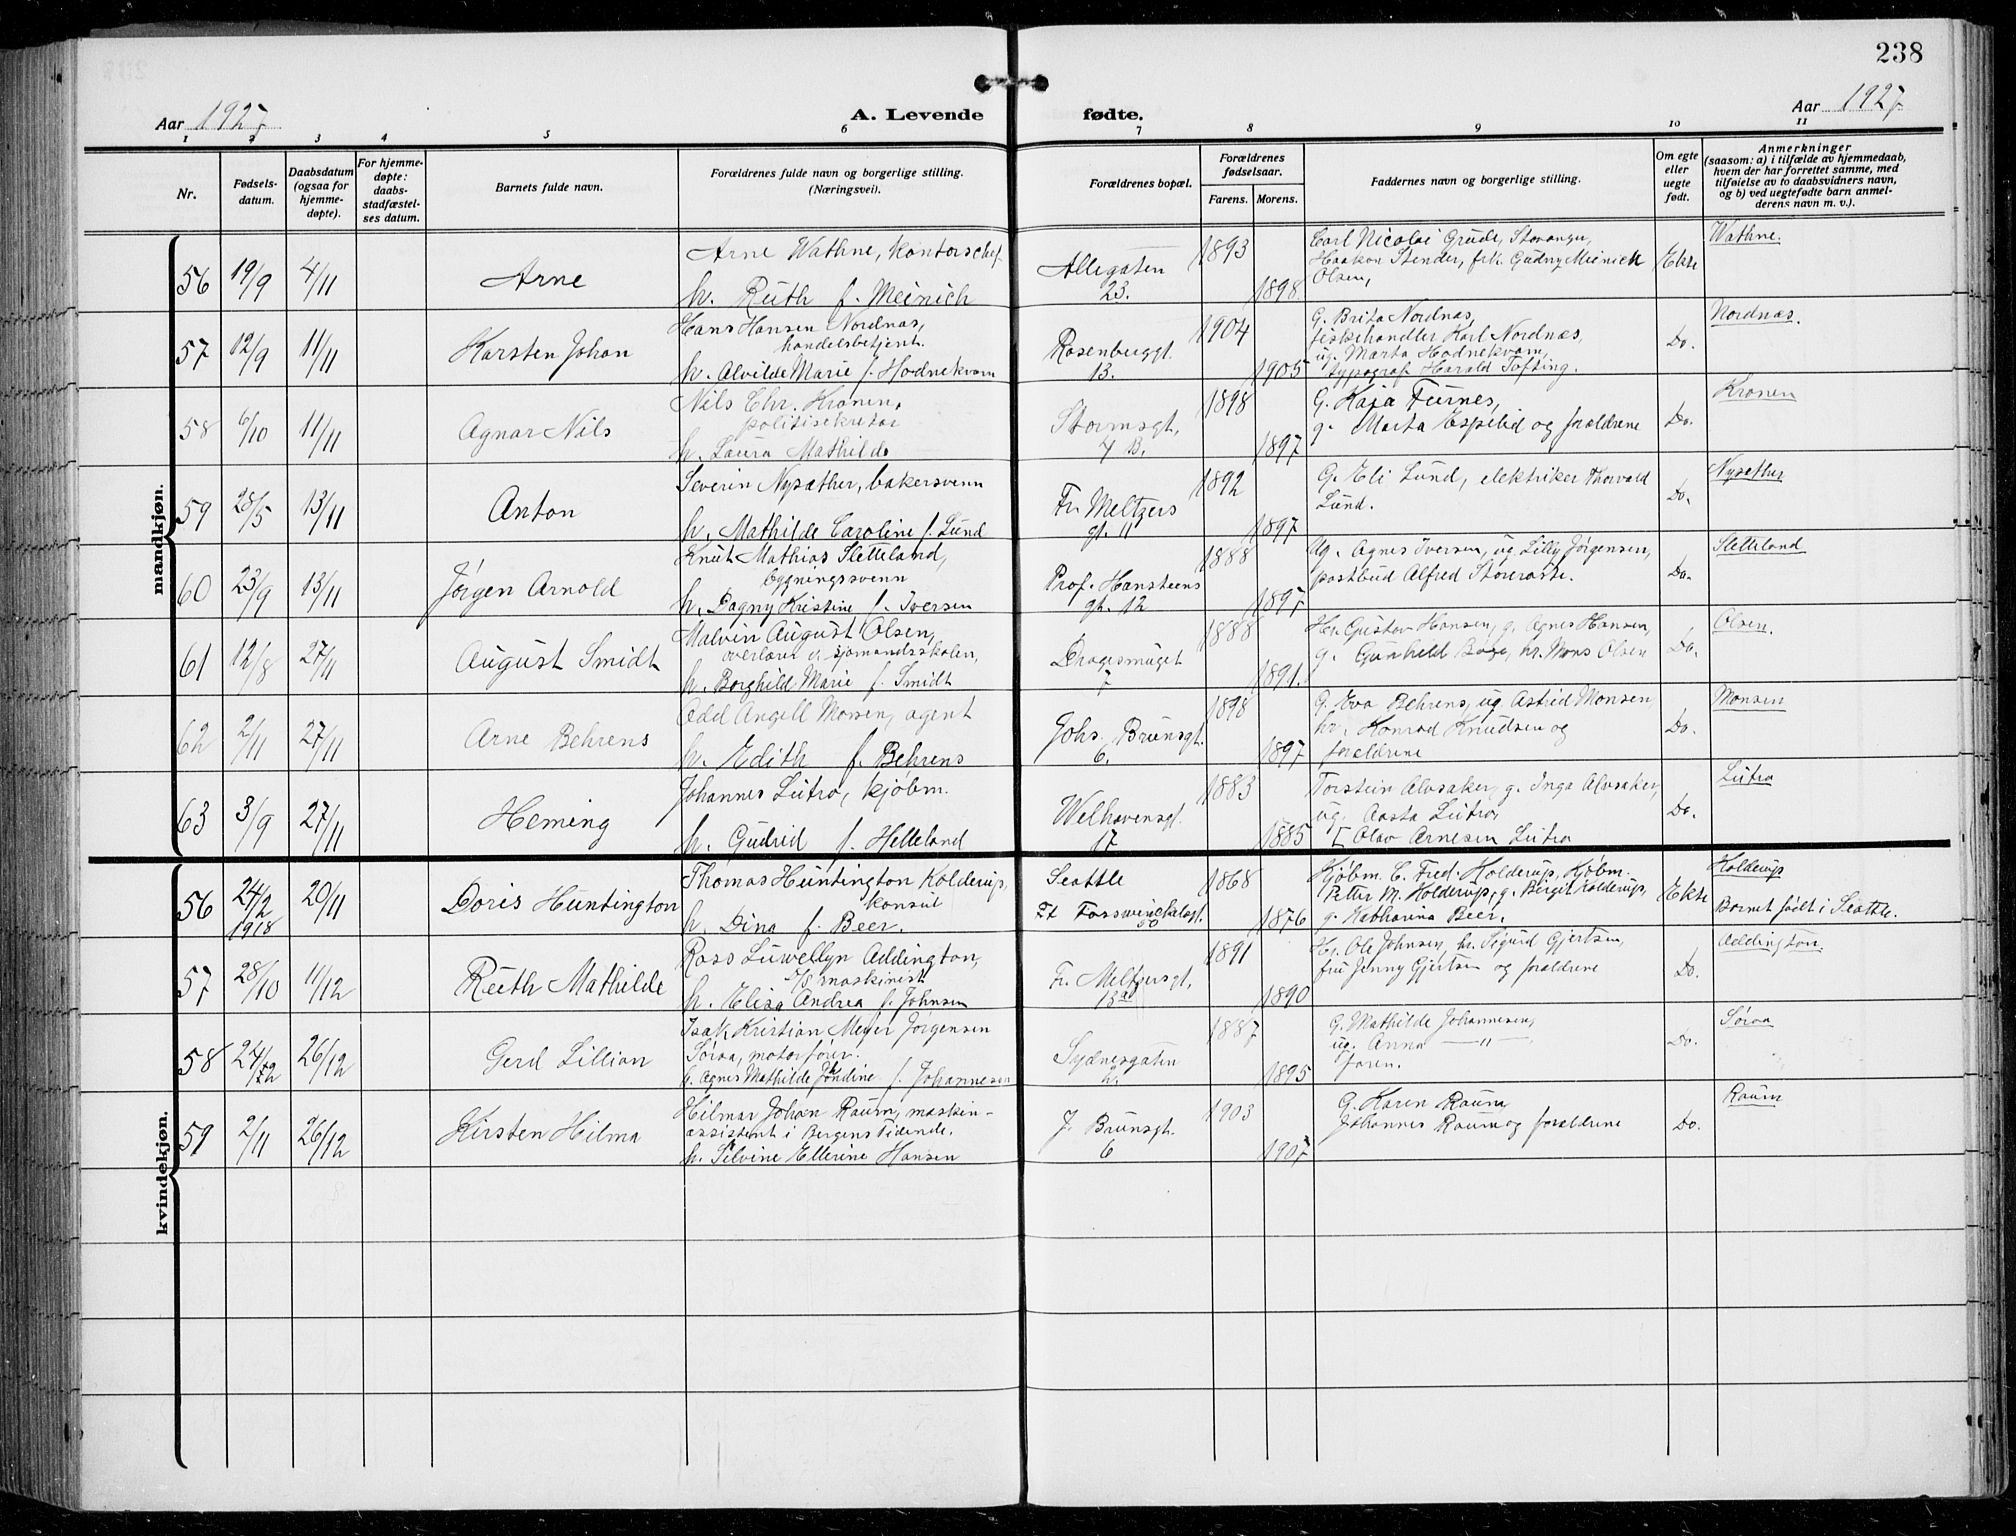 238
Aar 1927
A. Levende fødte.
Aar 1927
1 2 3 4 5 6 7 8 9 10 11
Nr.
Fødsels-
datum.
Daabsdatum
(ogsaa for
hjemme-
døpte).
For hjemme-
døpte:
daabs-
stadfæstel-
ses datum.
Barnets fulde navn.
Forældrenes fulde navn og borgerlige stilling.
(Næringsvei).
Forældrenes bopæl.
Forældrenes
fødselsaar.
Farens. Morens.
Faddernes navn og borgerlige stilling.
Om egte
eller
uegte
født.
Anmerkninger
(saasom: a) i tilfælde av hjemmedaab,
hvem der har forrettet samme, med
tilføielse av to daabsvidners navn,
og b) ved uegtefødte barn anmel-
derens navn m. v.).
mandkjøn.
56 19/9 4/11 Arne
Arne Wathne, kontorschef
h. Ruth f. Meinich
Allegaten
23.
1893
1898
Carl Nicolai Grude, Stavanger,
Haakon Stender, frk. Gudny Meinich
Olsen,
Ekte
Wathne.
57 12/9 11/11 Karsten Johan
Hans Hansen Nordnæs,
handelsbetjent.
h. Alvilde Marie f. Hodnekvam
Rosenberggt.
13.
1904
1905
G. Brita Nordnæs,
fiskehandler Karl Nordnæs,
ug. Marta Hodnekvam,
typograf Harald Tofting.
Do.
Nordnæs.
58 6/10 11/11 Agnar Nils
Nils Chr. Kronen,
politisekretær
h. Laura Mathilde
Stormsgt,
4 B.
1898
1897
G. Kaja Furnes,
g. Marta Espelid og forældrene
Do.
Kronen
59 28/5 13/11 Anton
Severin Nysæther, bakersvenn
h. Mathilde Caroline f. Lund
Fr. Meltzers
gt. 11
1892
1897
G. Eli Lund, elektriker Thorvald
Lund.
Do.
Nysæther
60 23/9 13/11 Jørgen Arnold
Knut Mathias Sletteland,
bygningssvenn
h. Dagny Kristine f. Iversen
Prof. Hansteens
gt. 12
1888
1897
Ug. Agnes Iversen, ug. Lilly Jørgensen,
postbud Alfred
Do.
Sletteland
61 12/8 27/11 August Smidt
Malvin August Olsen,
overlærer v. sjømandsskolen,
h. Borghild Marie f. Smidt
Dragesmuget
7
1888
1891.
Hr. Gustav Hansen, g. Agnes Hansen,
g. Gunhild Bøge, hr. Mons Olsen
Do.
Olsen.
62 2/11 27/11 Arne Behrens
Odd Angell Monsen, agent
h. Edith f. Behrens
Johs. Brunsgt.
6.
1898
1897
G. Eva Behrens, ug. Astrid Monsen
hr. Konrad Knudsen og
forældrene
Do.
Monsen
63 3/9 27/11 Heming
Johannes Lutro, kjøbm.
h. Gudrid f. Helleland
Welhavensgt.
17
1883
1885
Torstein Alvsaker, g. Inga Alvsaker,
ug. Aasta Lutro,
[ Olav Arnesen Lutro
Do.
Lutro
kvindekjøn.
56 24/2 1918 20/11 Doris Huntington
Thomas Huntington Kolderup,
konsul
h. Dina f. Beer.
Seattle
50
1868
1876
Kjøbm. C. Fred. Kolderup, Kjøbm.
Petter M. Kolderup, g. Bergit Kolderup,
g. Katharina Beer.
Ekte
Kolderup
Barnet født i Seattle.
57 28/10 11/12 Ruth Mathilde
Ross Luwellyn Addington,
maskinist
h. Elisa Andrea f. Johnsen
Fr. Meltzersgt,
13a
1891
1890
Hr. Ole Johnsen, hr. Sigurd Gjertsen,
fru Jenny Gjertsen og forældrene
Do.
Addington.
58 24/12 26/12 Gerd Lillian
Isak Kristian Meyer Jørgensen
Søraa, motorfører.
h. Agnes Mathilde Jondine f. Johannesen
Sydnesgaten
1887
1895
G. Mathilde Johannesen,
ug. Anna —"—,
faren.
Do.
Søraa
59 2/11 26/12 Kirsten Hilma
Hilmar Johan Raum, maskin-
assistent i Bergens Tidende.
h. Silvine Ellerine Hansen
J. Brunsgt.
6
1903
1907
G. Karen Raum,
Johannes Raum og forældrene
Do.
Raum